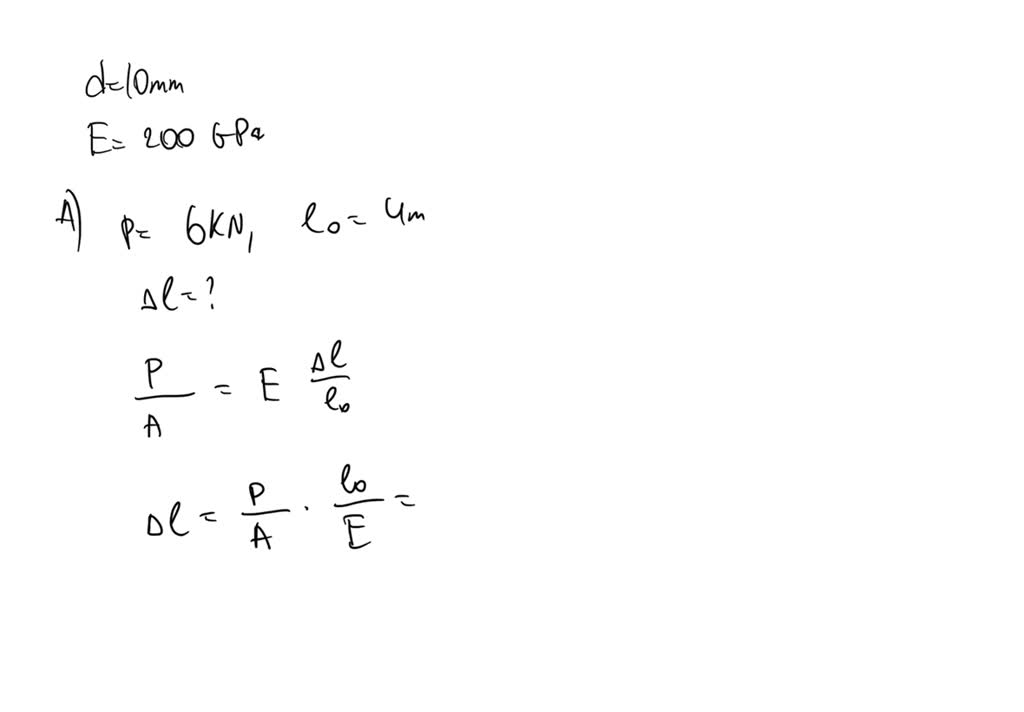 d=10mm
E= 200 GPa
A) P= 6KN, l₀= 4m
Δl=?
P/A = E Δl/l₀
Δl = P/A · l₀/E =